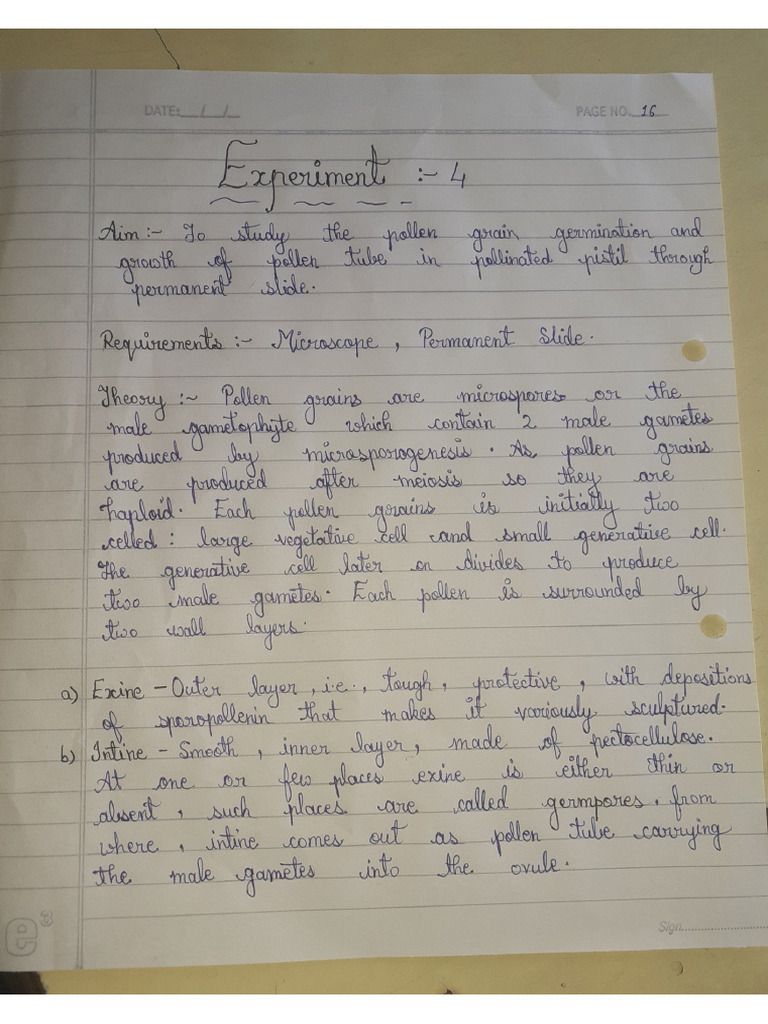 DATE: __/__/__
PAGE NO. 16
Experiment :- 4
Aim :- To study the pollen grain germination and
growth of pollen tube in pollinated pistil through
permanent slide.
Requirements :- Microscope , Permanent Slide.
Theory :- Pollen grains are microspores or the
male gametophyte which contain 2 male gametes
produced by microsporogenesis. As pollen grains
are produced after meiosis so they are
haploid. Each pollen grains is initially two
celled : large vegetative cell and small generative cell.
The generative cell later on divides to produce
two male gametes. Each pollen is surrounded by
two wall layers.
a) Exine - Outer layer , i.e., tough , protective , with depositions
of sporopollenin that makes it variously sculptured.
b) Intine - Smooth , inner layer , made of pectocellulose.
At one or few places exine is either thin or
absent , such places are called germpores , from
where , intine comes out as pollen tube carrying
the male gametes into the ovule.
Sign..................